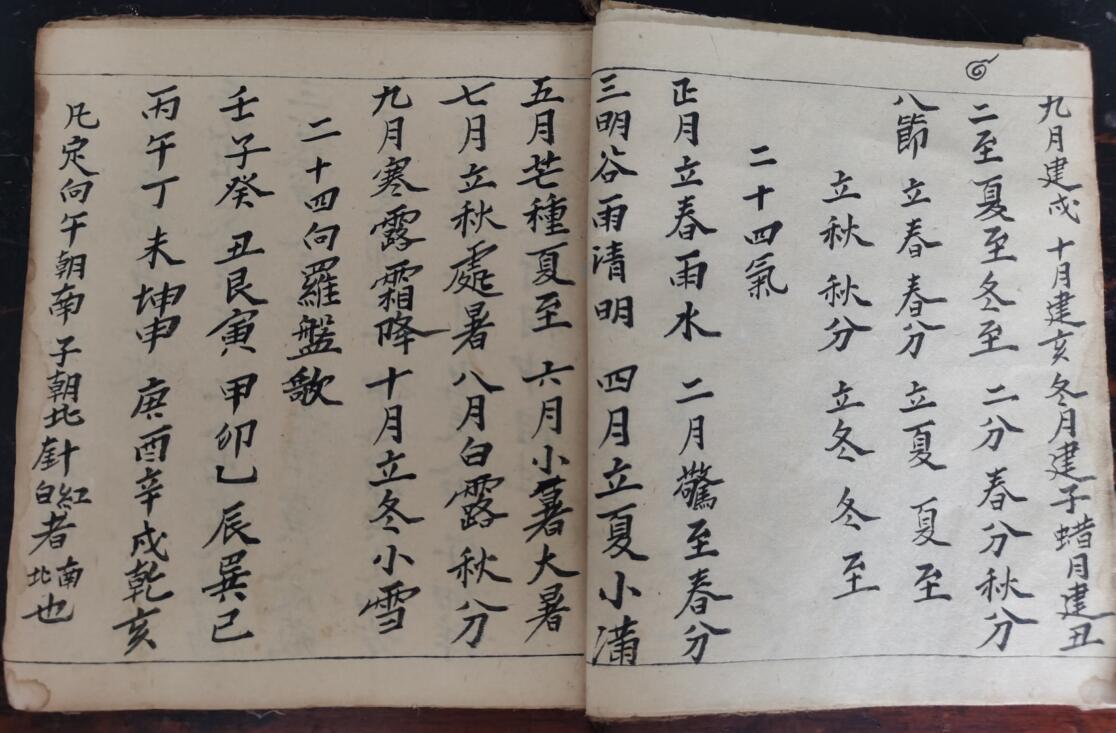 九月建戌 十月建亥 冬月建子 蜡月建丑
二至夏至冬至 二分春分秋分
八節 立春春分 立夏夏至
立秋秋分 立冬冬至
二十四氣
正月立春雨水 二月驚至春分
三明谷雨清明 四月立夏小滿
五月芒種夏至 六月小暑大暑
七月立秋處暑 八月白露秋分
九月寒露霜降 十月立冬小雪
二十四向羅盤歌
壬子癸丑艮寅甲卯乙辰巽巳
丙午丁未坤申庚酉辛戌乾亥
凡定向午朝南子朝北針紅白者南北也